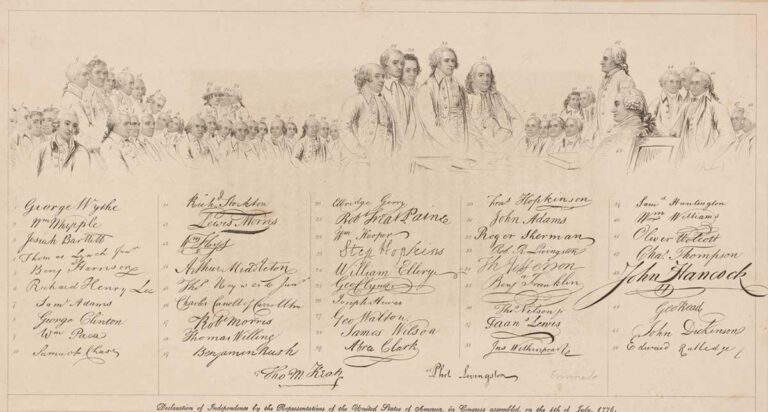 George Wythe
Wm Whipple
Josiah Bartlett
Thomas Lynch Junr
Benj Harrison
Richard Henry Lee
Saml Adams
George Clinton
Wm Paca
Samuel Chase
Richd Stockton
Lewis Morris
Wm Floyd
Arthur Middleton
Thos Heyward Junr
Charles Carroll of Carrollton
Robt Morris
Thomas Willing
Benjamin Rush
Thos M: Kean
Elbridge Gerry
Robt Treat Paine
Wm Hooper
Step Hopkins
William Ellery
Geo Clymer
Joseph Hewes
Geo Walton
James Wilson
Abra Clark
Fras Hopkinson
John Adams
Roger Sherman
Rob. R. Livingston
Th Jefferson
Benj Franklin
Thos Nelson jr
Frans Lewis
Jno Witherspoon
Phil Livingston
Saml Huntington
Wm Williams
Oliver Wolcott
Chas Thompson
John Hancock
Geo Read
John Dickinson
Edward Rutledge
Declaration of Independence by the Representatives of the United States of America, in Congress assembled, on the 4th of July, 1776.